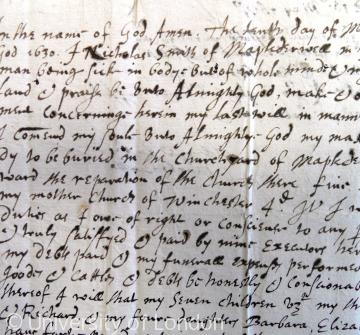 In the name of God Amen. The tenth day of M
God 1630. I Nicholas Smith of Mapledurwell in
man being sick in bodye but of whole minde &
laud & praise be unto Almighty God, make &
ment concerninge herein my last will in mann
I comend my soule unto Almighty God my ma
dy to be buried in the Churchyard of Mapled
ward the reparation of the Church there five
my mother Church of Winchester 4d. It I
duties as I owe of right or conscience to any
& truly satisfyed & paid by mine Executors her
my debts paid & my funerall expenses performe
goods & Cattles & debts be honestly & consionab
thereof I will that my Seven children viz my th
& Richard, & my foure daughters Barbara, Eliz
© University of London